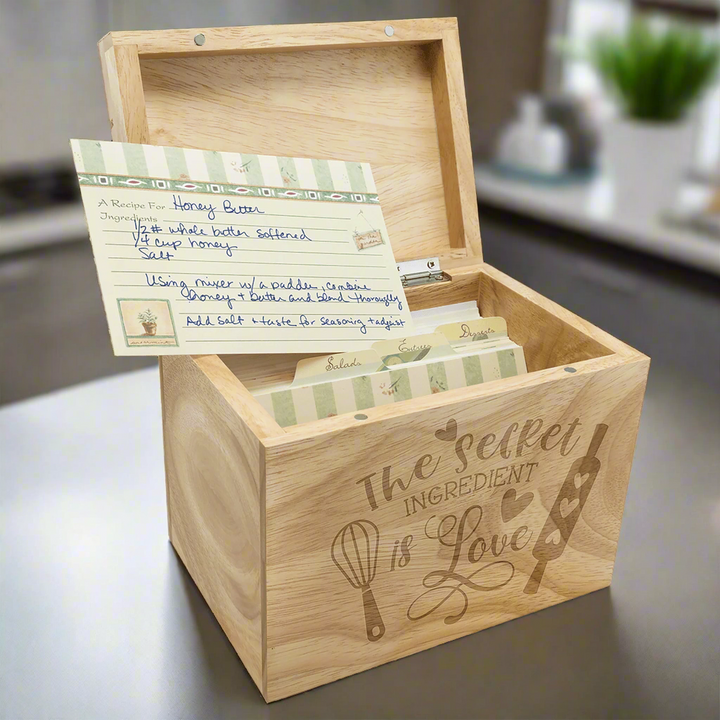 A Recipe For Honey Butter
Ingredients
1/2 # whole butter softened
1/4 cup honey
Salt
Using mixer w/ a paddle, combine
honey + butter and blend thoroughly
Add salt + taste for seasoning + adjust
Salads
Entrees
Desserts
The Secret
INGREDIENT
is Love